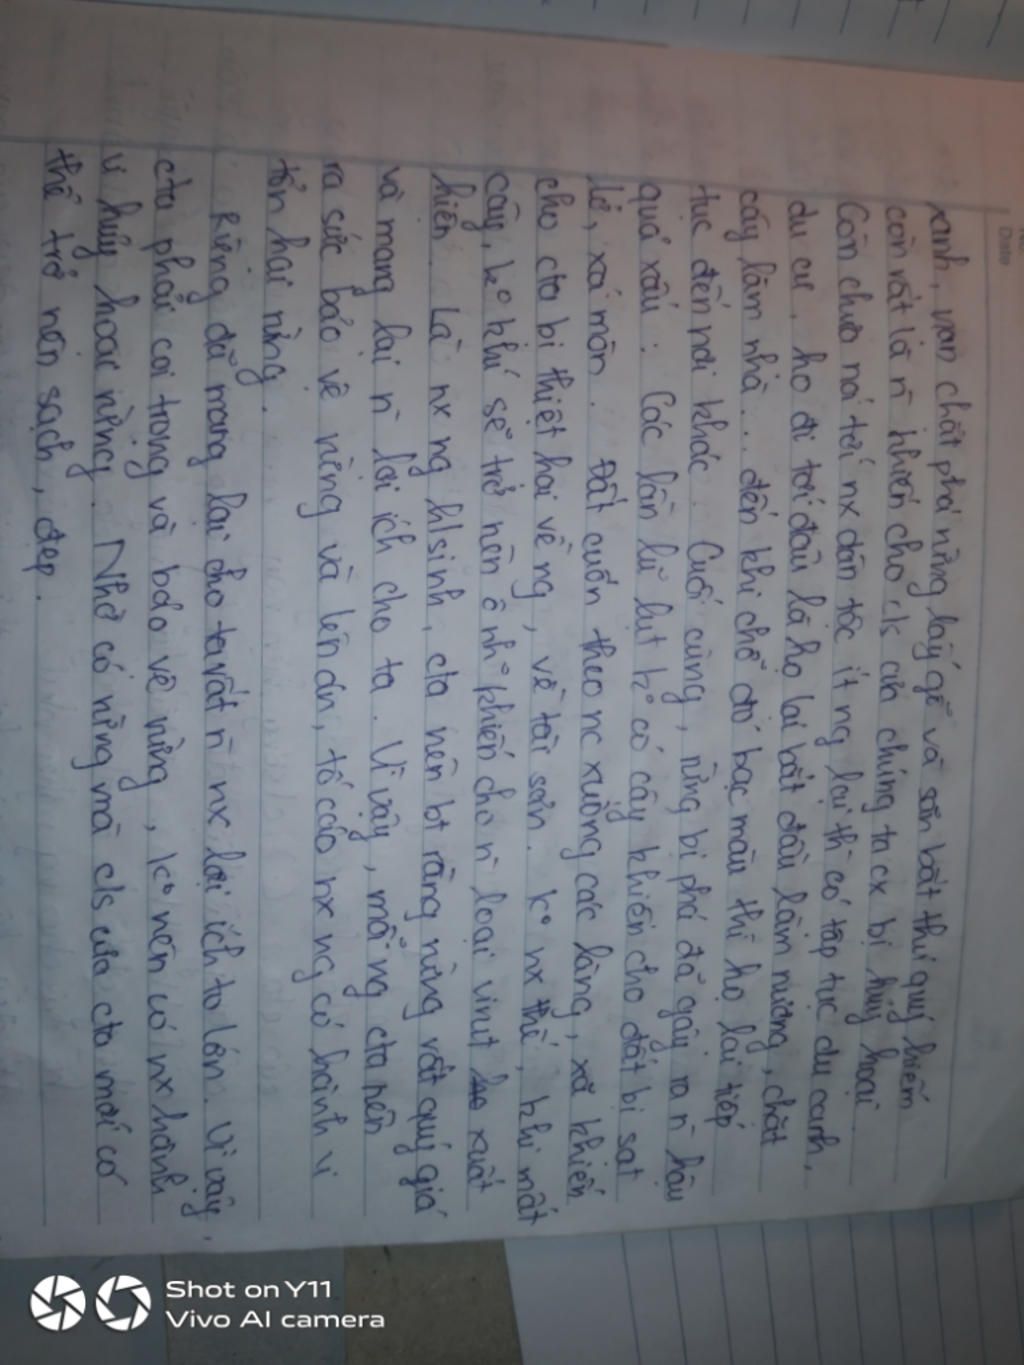 No
Date
xanh, vẫn chặt phá rừng lấy gỗ và săn bắt thú quý hiếm
còn rất là n̄ khiến cho c/s của chúng ta cx bị hủy hoại.
Còn chưa nói tới nx dân tộc ít ng lại thì có tập tục du canh,
du cư, họ đi tới đâu là họ lại bắt đầu làm nương, chặt
cây làm nhà... đến khi chỗ đó bạc màu thì họ lại tiếp
tục đến nơi khác. Cuối cùng, rừng bị phá đã gây ra n̄ hậu
quả xấu: Các lần lũ lụt k° có cây khiến cho đất bị sạt
lở, xói mòn. Đất cuốn theo nc xuống các làng, xã khiến
cho cta bị thiệt hại về ng, về tài sản. k° nx thế, khi mất
cây, k° khí sẽ trở nên ô nh° khiến cho n̄ loại virut xuất
hiện. Là nx ng hlsinh, cta nên bt rằng rừng rất quý giá
và mang lại n̄ lợi ích cho ta. Vì vậy, mỗi ng cta nên
ra sức bảo vệ rừng và lên án, tố cáo nx ng có hành vi
tổn hại rừng.
Rừng đã mang lại cho ta rất n̄ nx lợi ích to lớn. Vì vậy,
cta phải coi trọng và bảo vệ rừng, k° nên có nx hành
vi hủy hoại rừng. Nhờ có rừng mà c/s của cta mới có
thể trở nên sạch, đẹp.
Shot on Y11
Vivo AI camera